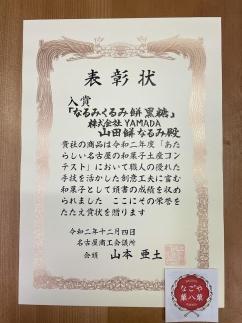 表彰状
入賞
「なるみくるみ餅黒糖」
株式会社YAMADA
山田餅なるみ殿
貴社の商品は令和二年度「あた
らしい名古屋の和菓子土産コン
テスト」において職人の優れた
手技を活かした創意工夫に富む
和菓子として頭書の成績を収め
られました ここにその栄誉を
たたえ賞状を贈ります
令和二年十二月四日
名古屋商工会議所
会頭 山本亜土
なごや
菓八菓